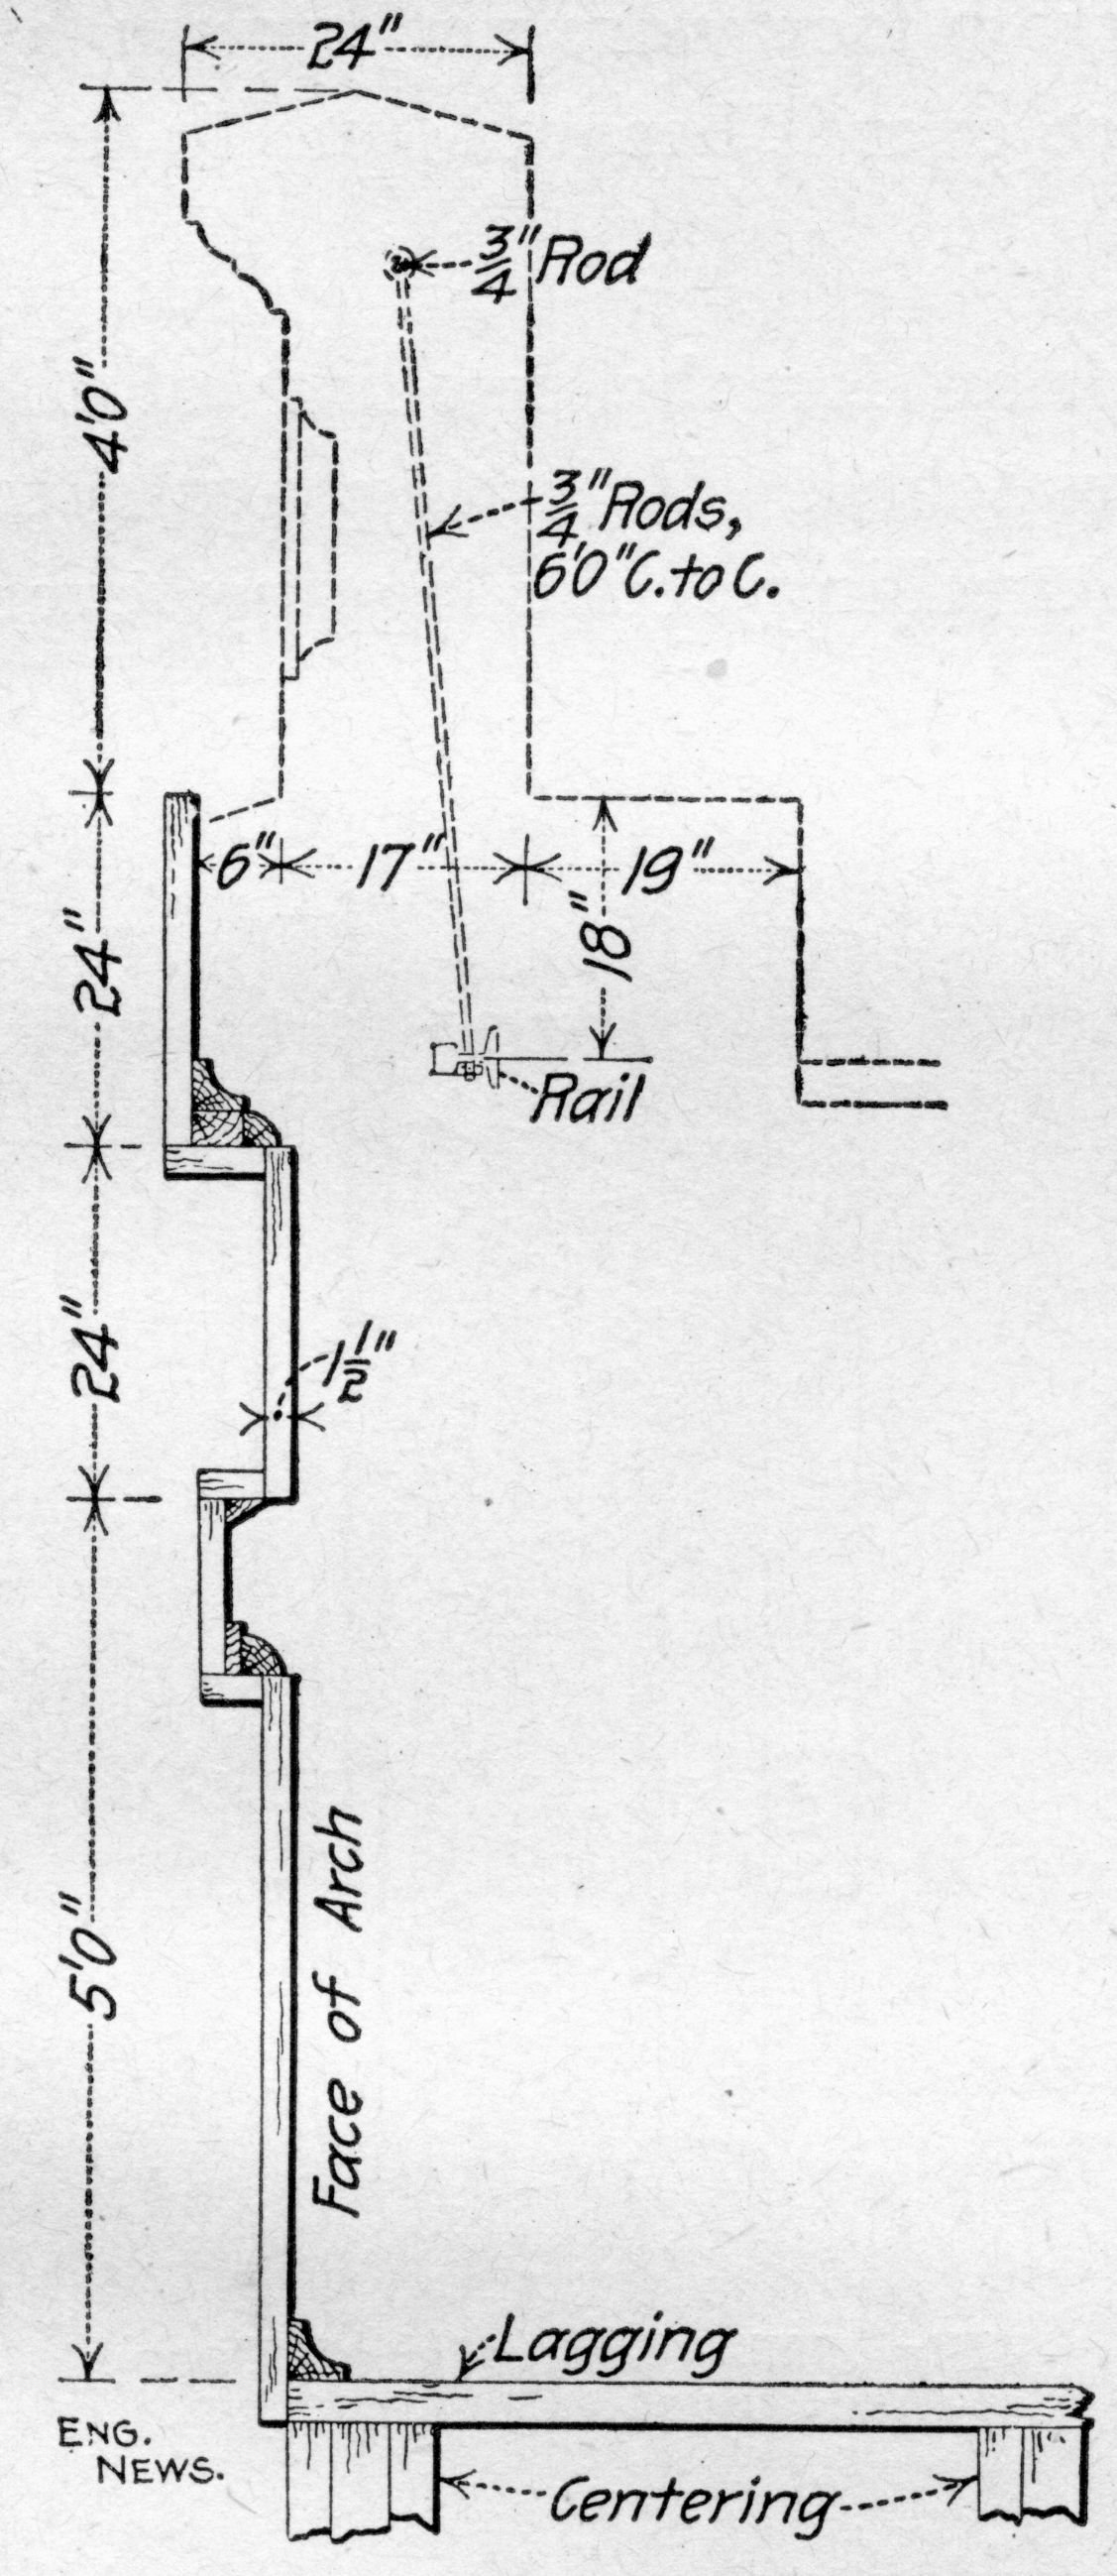 24"
3/4" Rod
4'0"
3/4" Rods,
6'0" C. to C.
6" 17" 19"
18"
24"
Rail
24"
1 1/2"
5'0"
Face of Arch
Lagging
ENG.
NEWS.
Centering